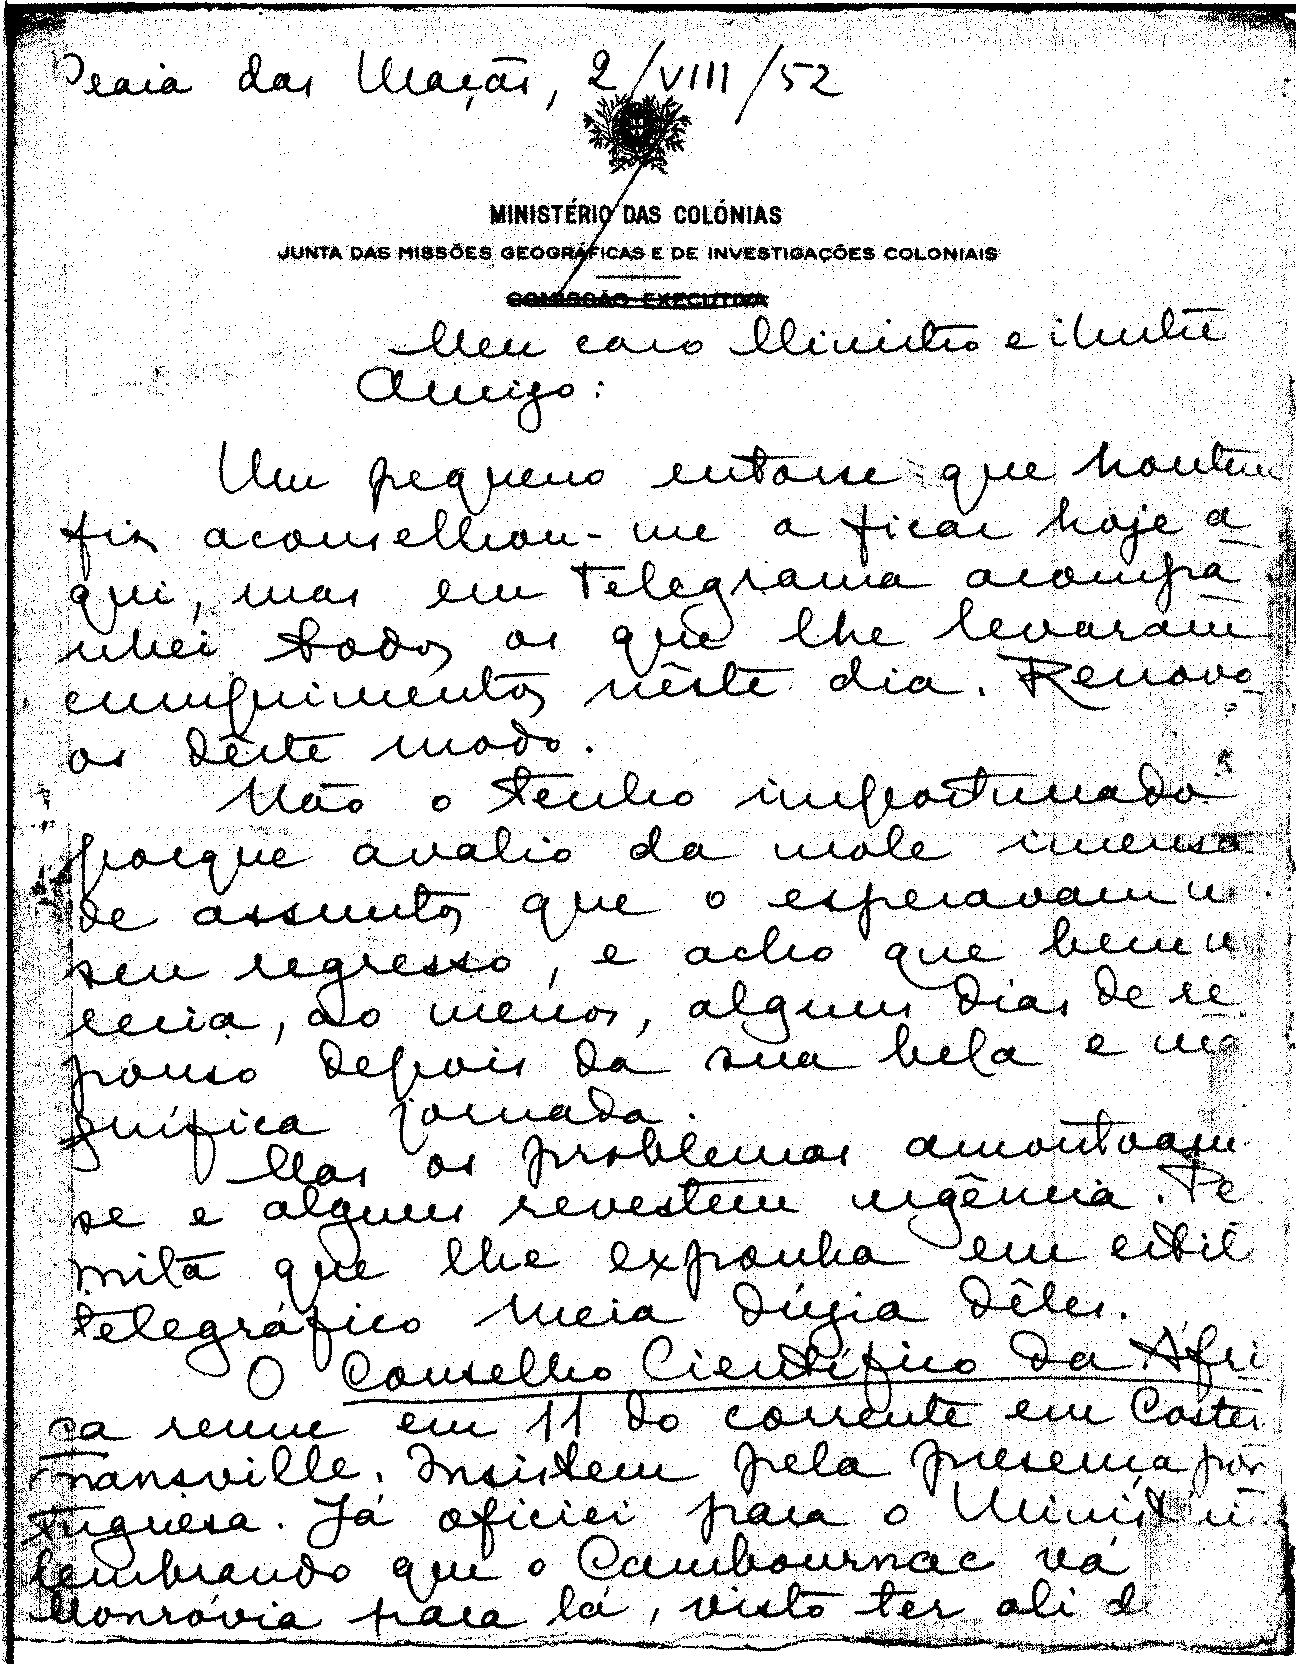 Praia das Maçãs, 2/VIII/52
MINISTÉRIO DAS COLÓNIAS
JUNTA DAS MISSÕES GEOGRÁFICAS E DE INVESTIGAÇÕES COLONIAIS
COMISSÃO EXECUTIVA
Meu caro Ministro e ilustre
Amigo:
Um pequeno entorse que hontem
fiz aconselhou-me a ficar hoje a
qui, mas em telegrama acompa
nhei todos os que lhe levaram
cumprimentos nêste dia. Renovo-
os dêste modo.
Não o tenho importunado
porque avalio da mole imensa
de assuntos que o esperavam n
seu regresso, e acho que bem m
recia, ao menos, alguns dias de re
pouso depois da sua bela e ma
gnífica jornada.
Mas os problemas amontoam
se e alguns revestem urgência. Pe
mita que lhe exponha em estil
telegráfico meia dúzia dêles.
O Conselho Científico da Áfri
ca reune em 11 do corrente em Coster
mansville. Insistem pela presença por
tuguesa. Já oficiei para o
lembrando que o Cambournac vá
Monróvia para lá, visto ter ali d